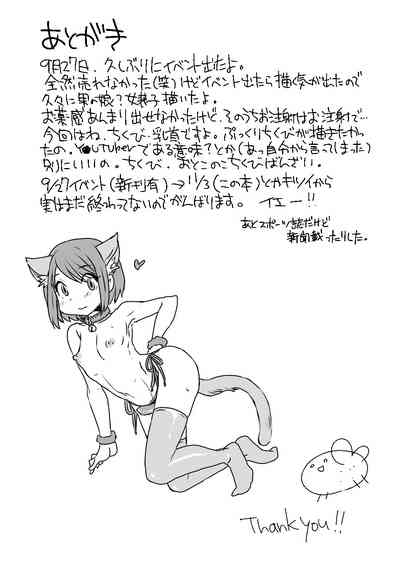 あとがき
9月27日、久しぶりにイベント出たよ。
全然売れなかった(笑)けどイベント出たら描く気が出たので
久々に男の娘?女装子描いたよ。
お薬感あんまり出せなかったけど、そのうちお注射はお注射で…
今回はね、ちくび・乳首ですよ。ぷっくりちくびが描きたかっ
たの。Y●uTuberである意味?とか(あっ自分から言ってしまった)
別にいいの。ちくび、おとこのこちくびばんざい。
9/27イベント(新刊有)→11/3(この本)とかキツイから
実はまだ終わってないのでがんばります。 イエー!!
あとスポーツ誌だけど
新聞載ったりした。
Thank you!!